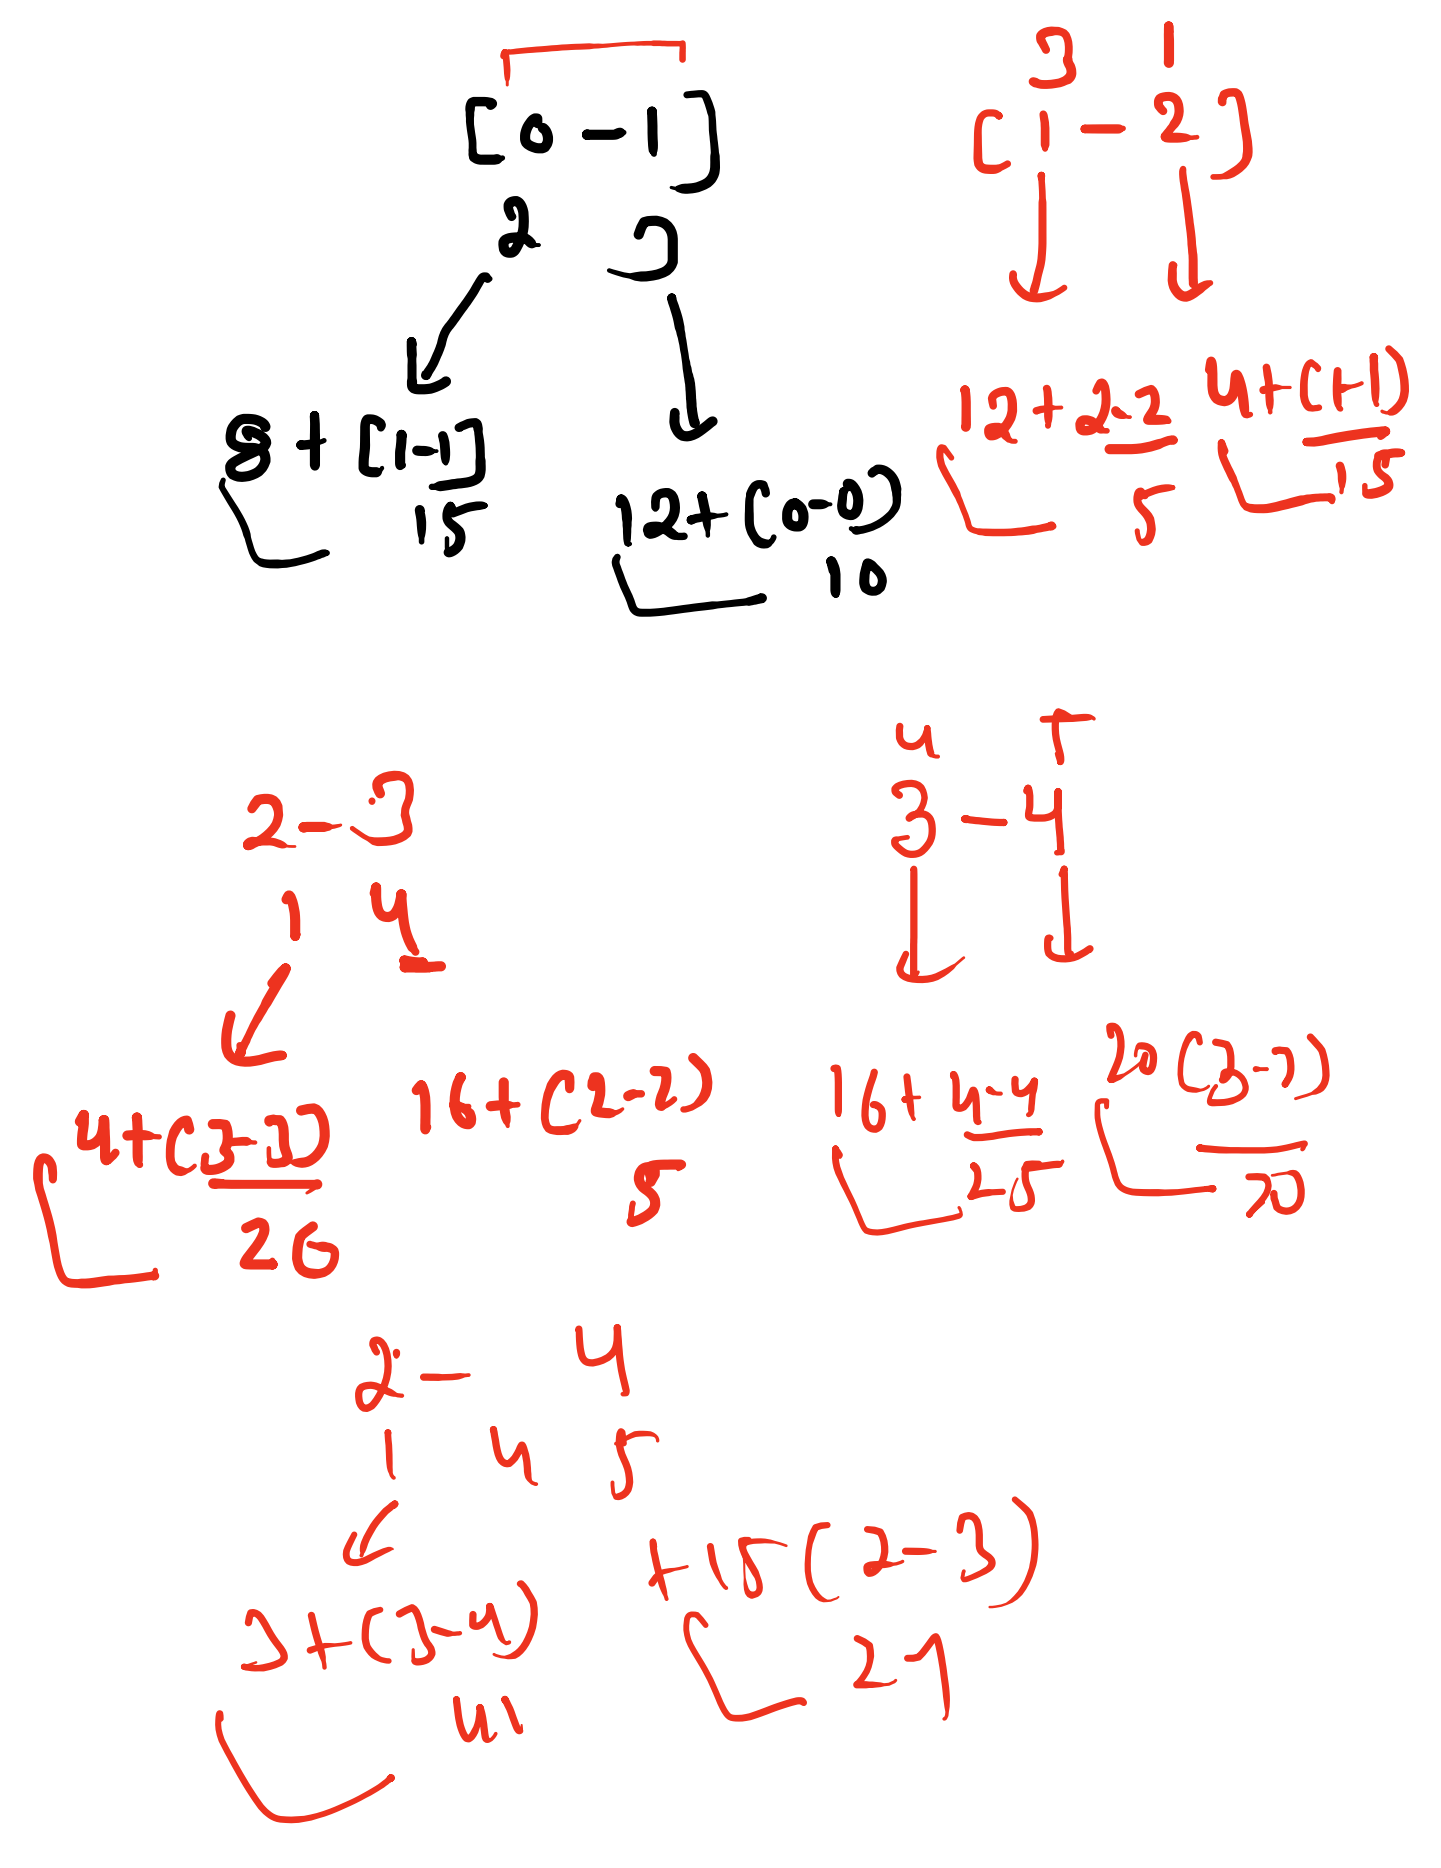 [0-1]
2 3
8+[1-1]
15
12+(0-0)
10
3 1
[1-2]
12+2-2
5
4+(1-1)
15
2-3
1 4
4+(3-3)
20
16+(2-2)
5
4 5
3-4
16+4-4
25
20(3-3)
20
2- 4
1 4 5
3+(3-4)
41
+15(2-3)
29